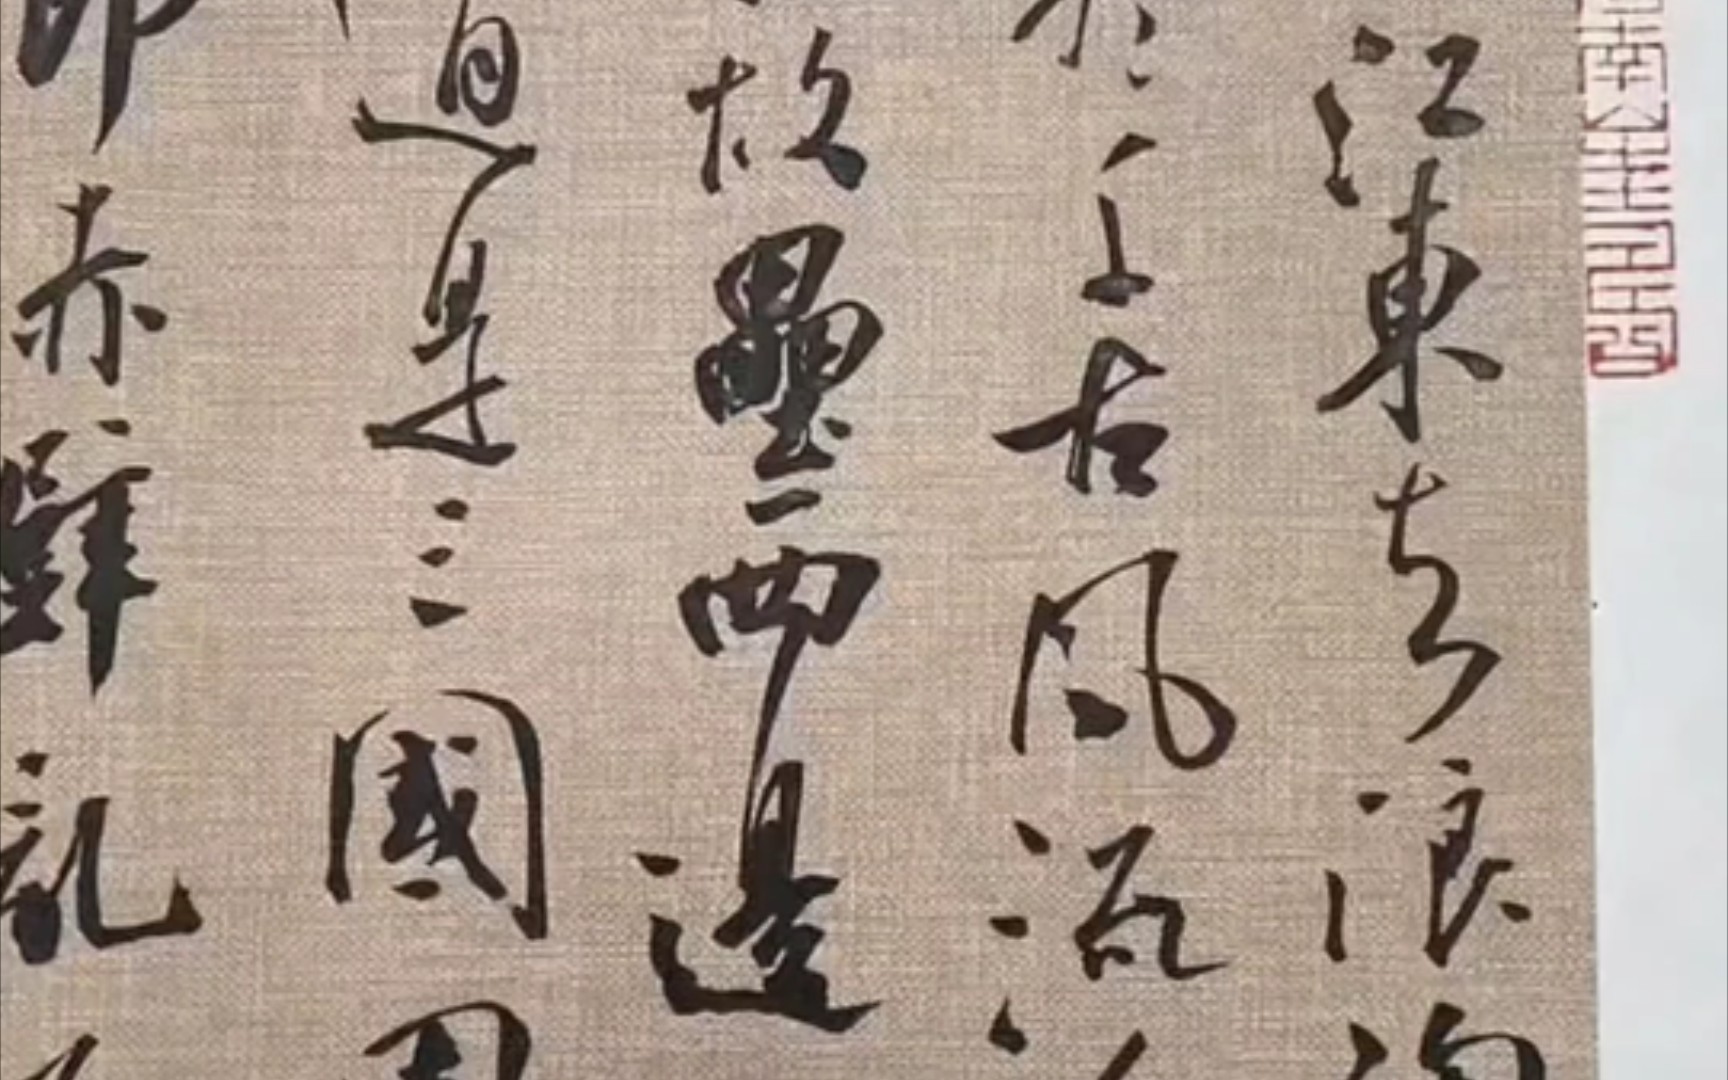 江東去浪
千古風流
故壘西邊
道是三國周
郎赤壁亂